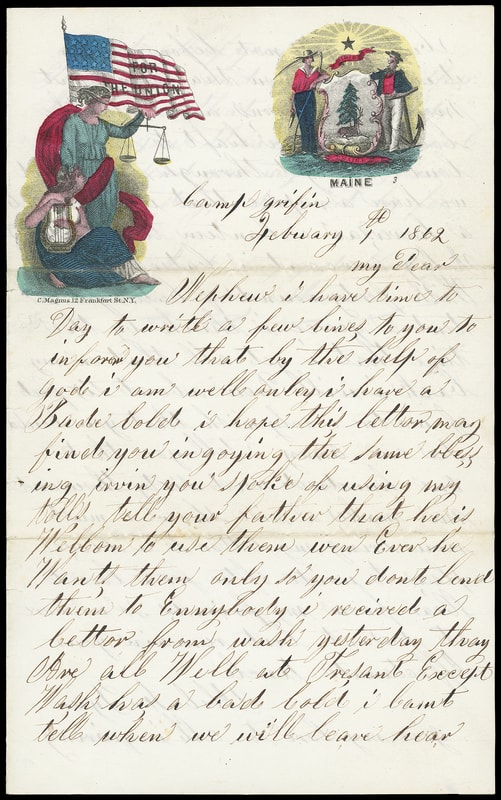 FOR
THE UNION
MAINE 3
C. Magnus, 12 Frankfort St. N.Y.
Camp grifin
Febuary th 1 1862
my Dear
Nephew i have time to
Day to write a few lines to you to
inform you that by the help of
god i am well onley i have a
Bade Cold i hope this letter may
find you ingoying the same bless
ing irvin you spoke of using my
tolls tell your father that he is
Wellcom to use them wen Ever he
Wants them only so you dont lend
them to Ennybody i recived a
letter from wash yesterday thay
Are all Well at Presant Except
Wash has a bad Cold i Cant
tell when we will leave hear